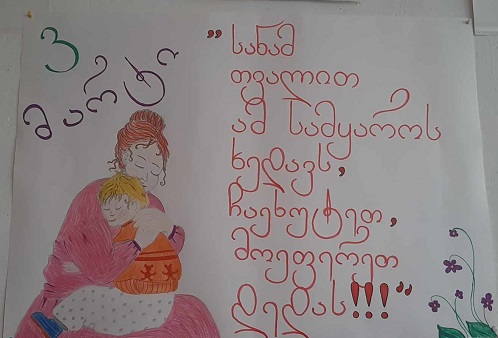 3
მარტი
"სანამ
თვალით
ამ სამყაროს
ხედავს,
ჩაეხუტეთ,
მოეფერეთ
დედას!!!"